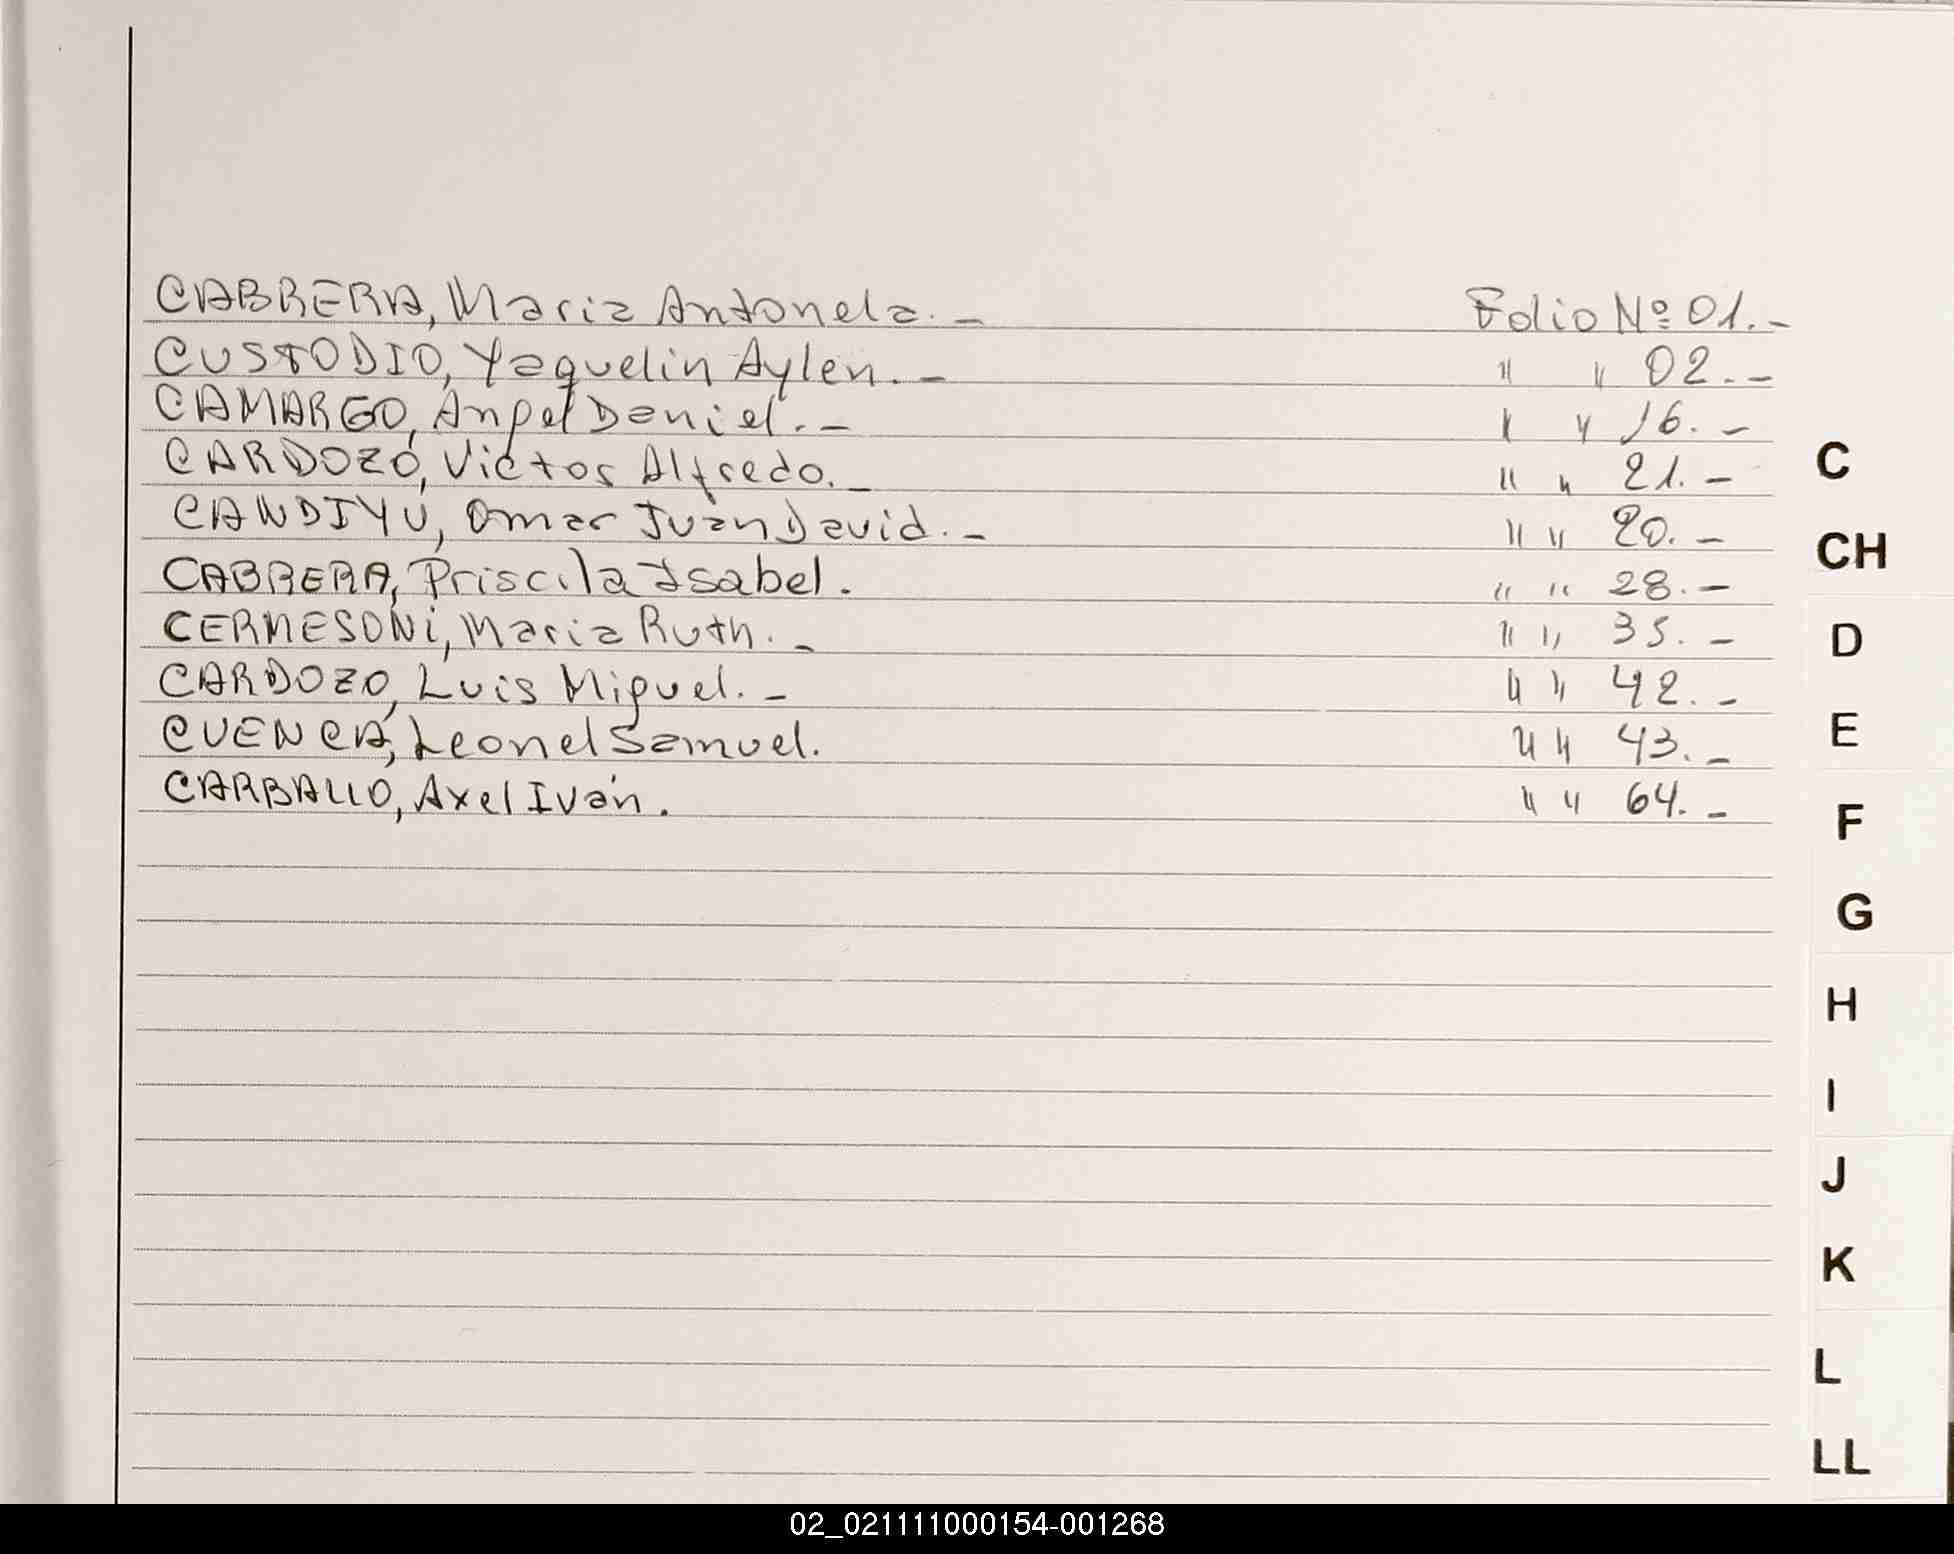 CABRERA, Maria Antonela.- Folio Nº 01.-
CUSTODIO, Yaquelin Aylen.- " " 02.-
CAMARGO, Angel Daniel.- " " 16.-
CARDOZO, Victor Alfredo.- " " 21.-
CANDIYU, Omar Juan David.- " " 20.-
CABRERA, Priscila Isabel. " " 28.-
CERMESONi, Maria Ruth.- " " 35.-
CARDOZO, Luis Miguel.- " " 42.-
CUENCA, Leonel Samuel. " " 43.-
CARBALLO, Axel Iván. " " 64.-
C
CH
D
E
F
G
H
I
J
K
L
LL
02_021111000154-001268